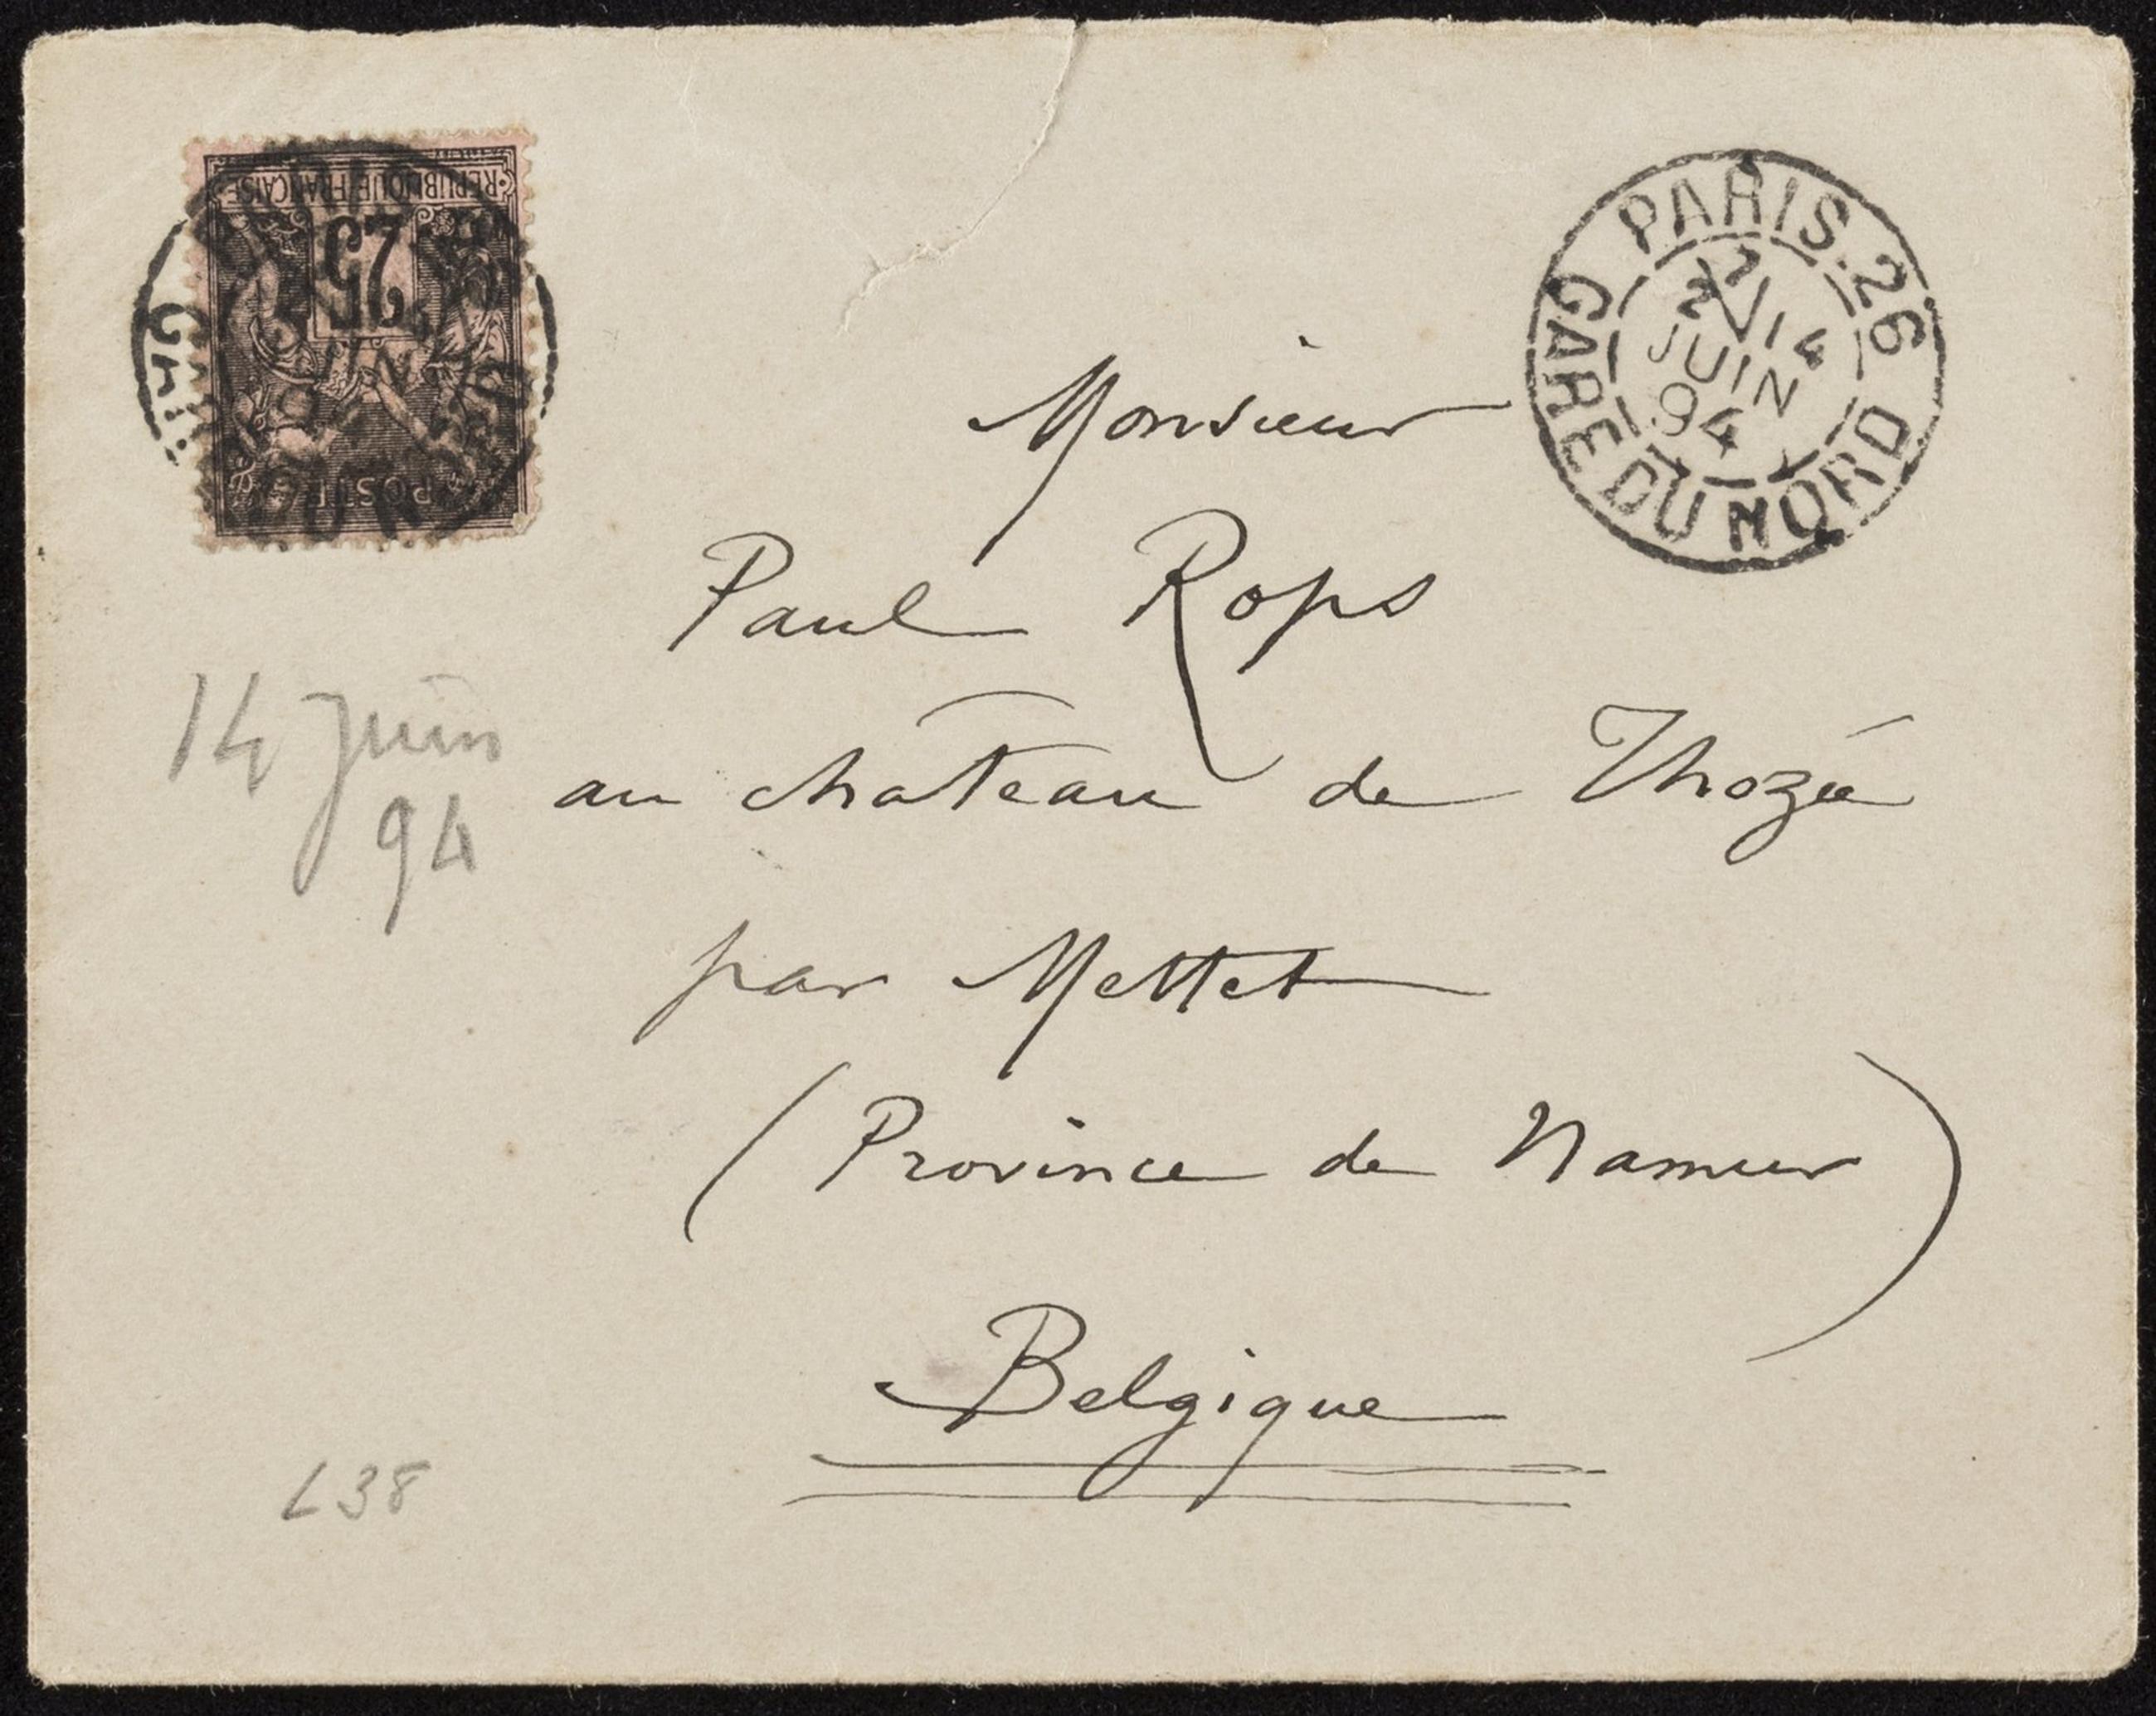 REPUBLIQUE FRANÇAISE
25
POSTES
PARIS. 26
14
JUIN
94
GARE DU NORD
Monsieur
Paul Rops
au château de Thozée
14 juin
94
par Mettet
(Province de Namur)
Belgique
L38